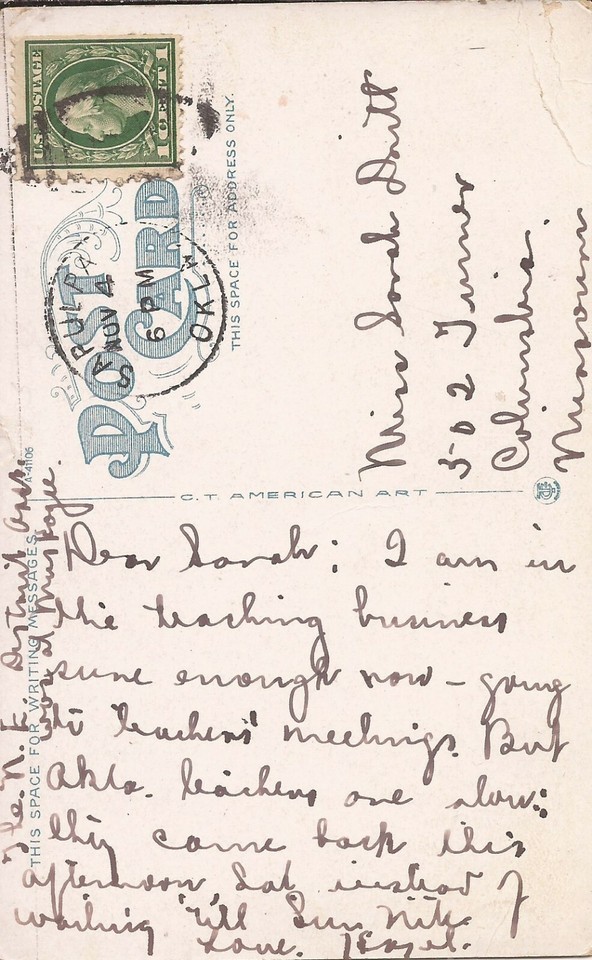 U.S. POSTAGE
1 CENT 1
SAPULPA
NOV 4
6 PM
OKLA
POST CARD
THIS SPACE FOR ADDRESS ONLY.
Miss Sarah
502 Turner
Columbia.
Missouri
A-41106
C.T. AMERICAN ART
THIS SPACE FOR WRITING MESSAGES
Dear Sarah: I am in
the teaching business
sure enough now – going
to teachers' meetings. But
Okla. teachers are slow:
they came back this
afternoon, Sat, instead of
waiting 'till Sun. Nite
Love. Hazel.
The N.E. District Assn.
was at Muskogee.